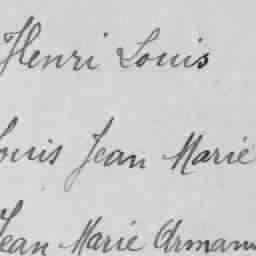 Henri Louis
Louis Jean Marie
Jean Marie Arman